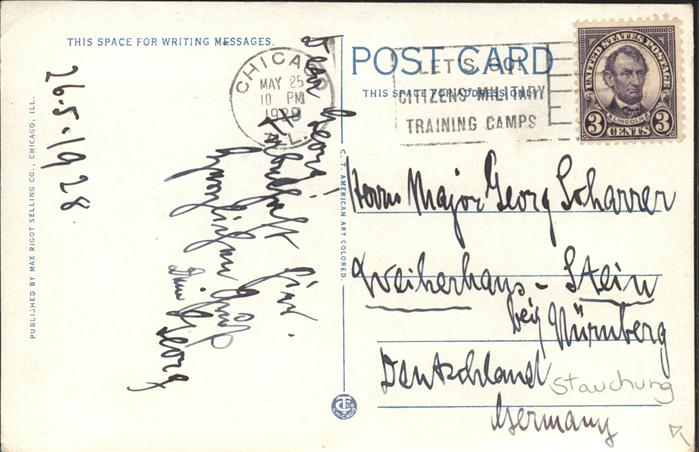 THIS SPACE FOR WRITING MESSAGES.
POST CARD
THIS SPACE FOR ADDRESS ONLY
CHICAGO
MAY 25
10 PM
1928
ILL.
LET'S GO!
CITIZENS MILITARY
TRAINING CAMPS
UNITED STATES POSTAGE
LINCOLN
3 CENTS 3
26.5.1928
Georg!
Georg
Herrn Major Georg Scharrer
Weiherhaus - Stein
bei Nürnberg
Deutschland
Stauchung
Germany
PUBLISHED BY MAX RIGOT SELLING CO., CHICAGO, ILL.
C. T. AMERICAN ART COLORED.